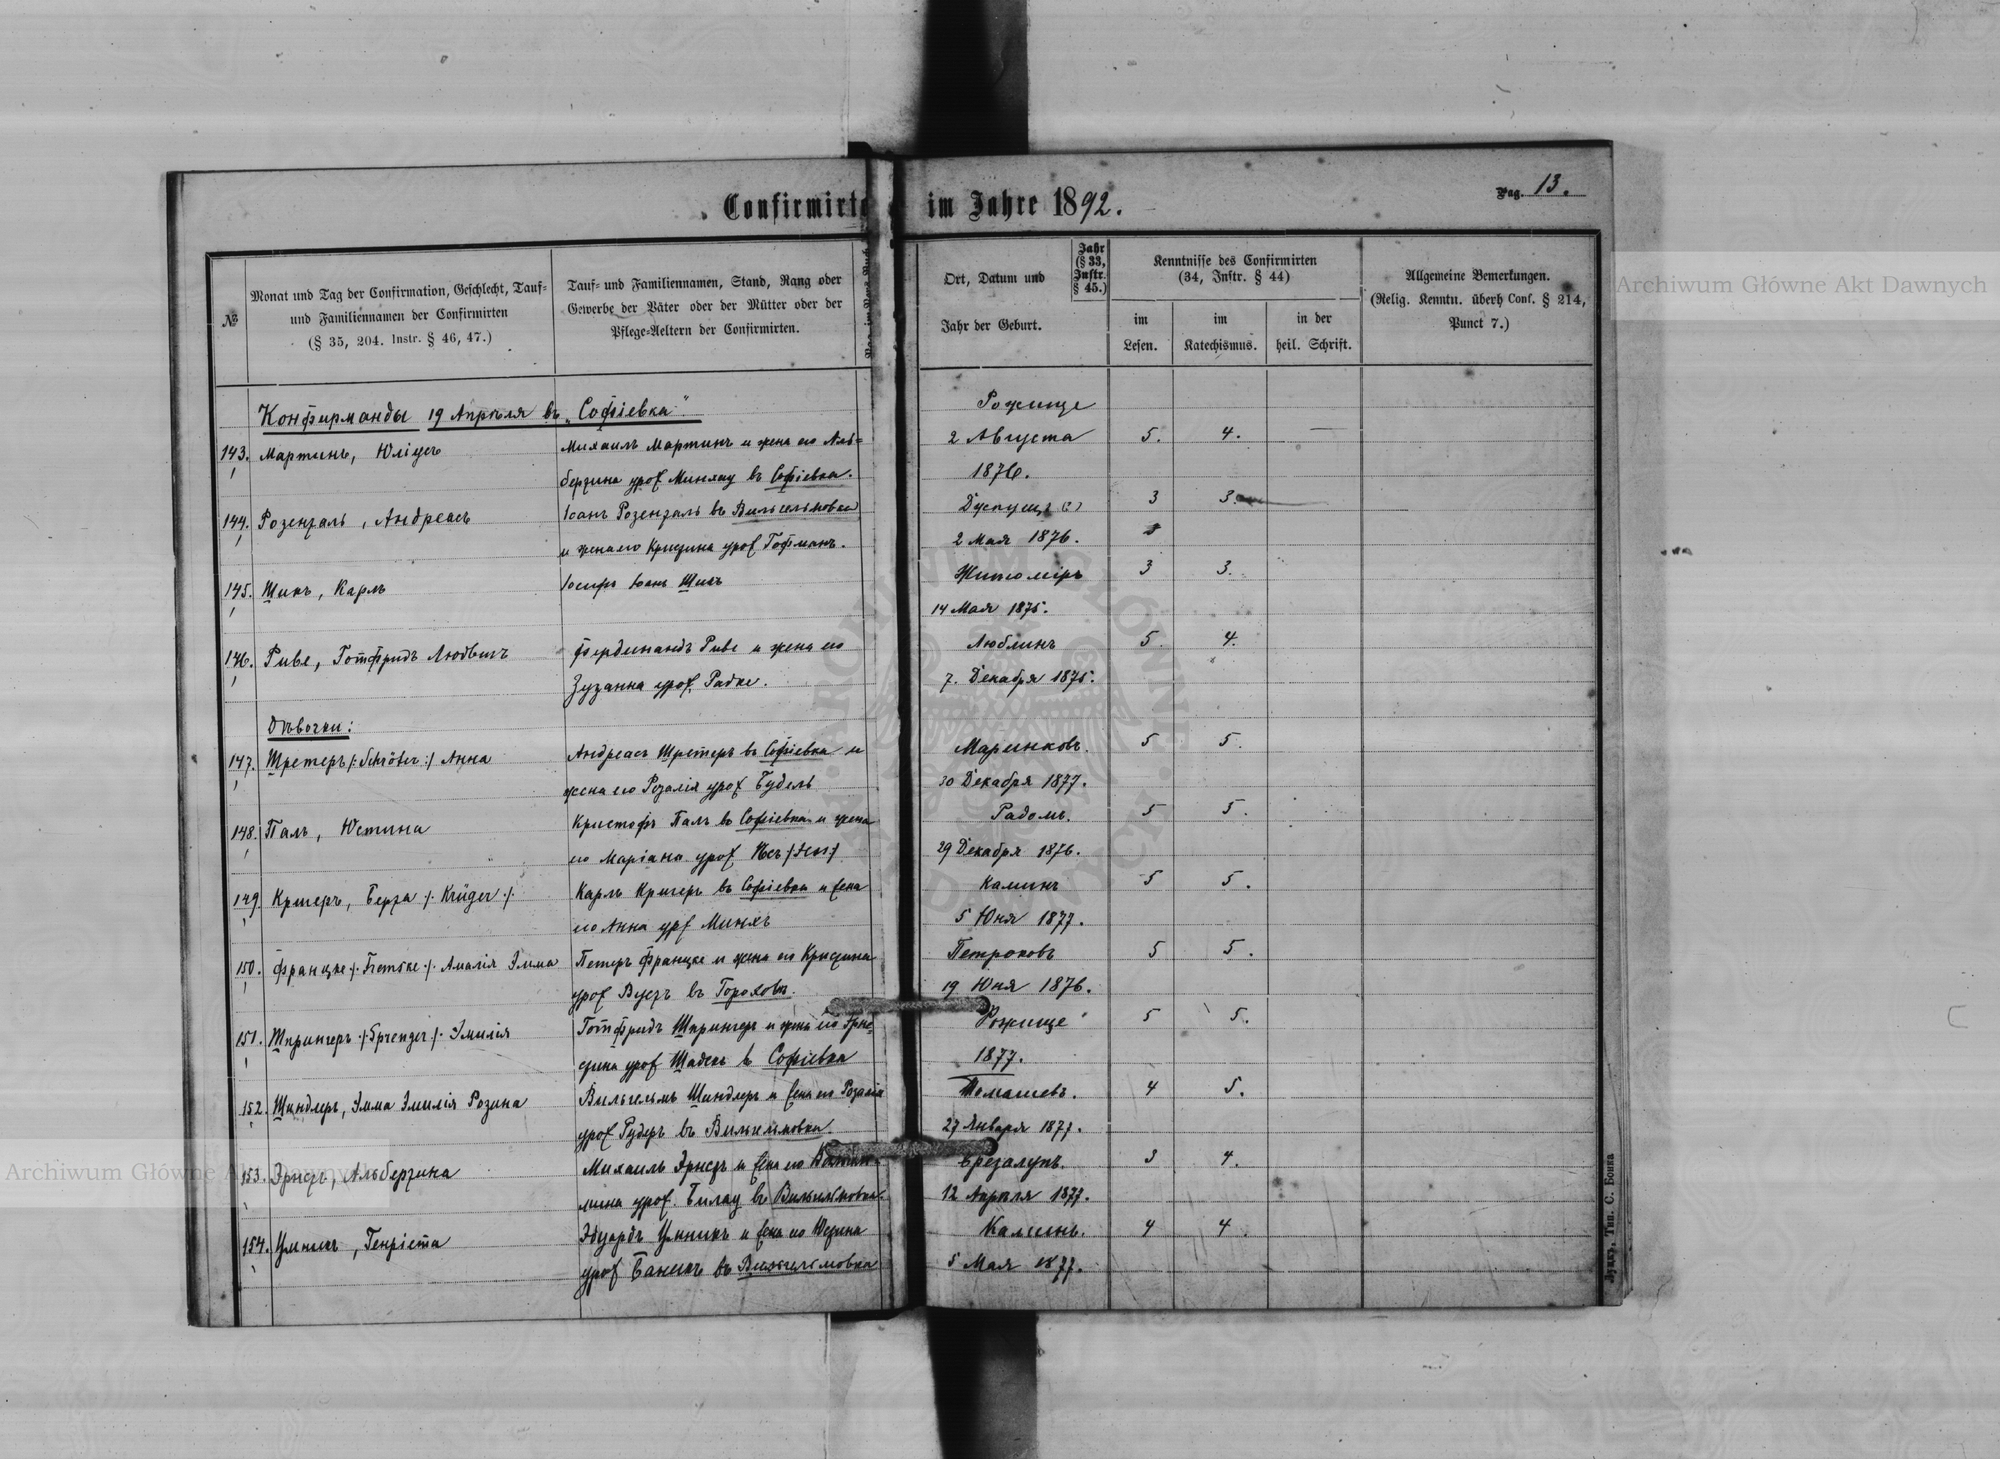 Confirmirte im Jahre 1892.
Pag. 13.
№
Monat und Tag der Confirmation, Geschlecht, Tauf-
und Familiennamen der Confirmirten
(§ 35, 204. Instr. § 46, 47.)
Tauf- und Familiennamen, Stand, Rang oder
Gewerbe der Väter oder der Mütter oder der
Pflege-Aeltern der Confirmirten.
Ort, Datum und
Jahr der Geburt.
Jahr
(§ 33,
Instr.
§ 45.)
Kenntnisse des Confirmirten
(34, Instr. § 44)
im
Lesen.
im
Katechismus.
in der
heil. Schrift.
Allgemeine Bemerkungen.
(Relig. Kenntn. überh Conf. § 214,
Punct 7.)
Конфирманды 19 Апрѣля въ „Софіевка"
Рожище
143. Мартинъ, Юліусъ Михаилъ Мартинъ и жена его Аль= 2 Августа 5. 4. —
бертина урож Минхау въ Софіевка. 1876.
144. Розенталь, Андреасъ Іоанъ Розенталь въ Вильгельмовка 3 3.
и жена его Кристина урож Гофманъ. 2 Мая 1876.
145. Шикъ, Карлъ Іосифъ Іоанъ Шикъ Житоміръ 3 3.
14 Мая 1875.
146. Риве, Готфридъ Людвигъ Фердинандъ Риве и жена его Люблинъ 5. 4.
Зузанна урож. Радке. 7. Декабря 1875.
Дѣвочки:
147. Шретеръ /: Schröter :/ Анна Андреасъ Шретеръ въ Софіевка и Маринковъ. 5 5.
жена его Розалія урож Будель 30 Декабря 1877.
148. Палъ, Юстина Кристофъ Палъ въ Софіевка и жена Радомъ. 5 5.
его Маріана урож 29 Декабря 1876.
149. Кригеръ, Берта /: Krüger :/ Карлъ Кригеръ въ Софіевка и жена Калишъ 5 5.
его Анна урж 5 Юня 1877.
150. Францке /: :/ Амалія Эмма Петеръ Францке и жена его Кристина Петроковъ 5 5.
урож въ 19 Юня 1876.
151. Шпрингеръ /: Sprenger :/ Эмилія Готфридъ Шпрингеръ и жена его Эрне= Рожище 5 5.
стина урож въ Софіевка 1877.
152. Шиндлеръ, Эмма Эмилія Розина Вильгельмъ Шиндлеръ и жена его Розалія Томашевъ. 4 5.
урож въ Вильгельмовка. 27 Января 1877.
153. Эрнстъ, Альбертина Михаилъ Эрнстъ и жена его 3 4.
урож. Билау въ Вильгельмовка. 12 Апрѣля 1877.
154. Умникъ, Генріета Эдуардъ Умникъ и жена его Юстина Калишъ. 4 4.
урож въ Вильгельмовка 5 Мая 1877.
Луцкъ, Тип. С. Бонка
Archiwum Główne Akt Dawnych
Archiwum Główne Akt Dawnych